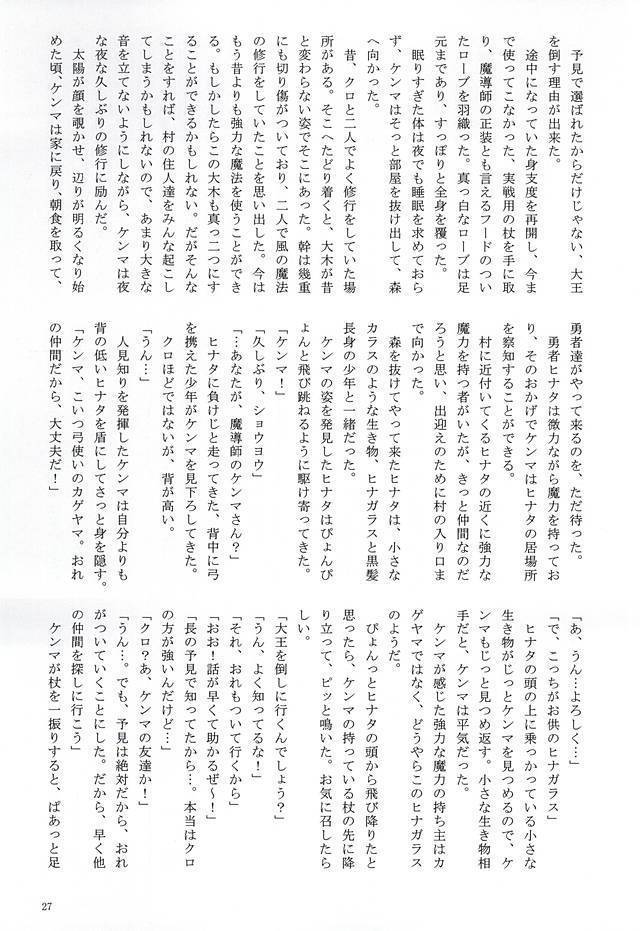 予見で選ばれたからだけじゃない、大王
を倒す理由が出来た。
　途中になっていた身支度を再開し、今ま
で使ってこなかった、実戦用の杖を手に取
り、魔導師の正装とも言えるフードのつい
たローブを羽織った。真っ白なローブは足
元まであり、すっぽりと全身を覆った。
　眠りすぎた体は夜でも睡眠を求めておら
ず、ケンマはそっと部屋を抜け出して、森
へ向かった。
　昔、クロと二人でよく修行をしていた場
所がある。そこへたどり着くと、大木が昔
と変わらない姿でそこにあった。幹は幾重
にも切り傷がついており、二人で風の魔法
の修行をしていたことを思い出した。今は
もう昔よりも強力な魔法を使うことができ
る。もしかしたらこの大木も真っ二つにす
ることができるかもしれない。だがそんな
ことをすれば、村の住人達をみんな起こし
てしまうかもしれないので、あまり大きな
音を立てないようにしながら、ケンマは夜
な夜な久しぶりの修行に励んだ。
　太陽が顔を覗かせ、辺りが明るくなり始
めた頃、ケンマは家に戻り、朝食を取って、
勇者達がやって来るのを、ただ待った。
　勇者ヒナタは微力ながら魔力を持ってお
り、そのおかげでケンマはヒナタの居場所
を察知することができる。
　村に近付いてくるヒナタの近くに強力な
魔力を持つ者がいたが、きっと仲間なのだ
ろうと思い、出迎えのために村の入り口ま
で向かった。
　森を抜けてやって来たヒナタは、小さな
カラスのような生き物、ヒナガラスと黒髪
長身の少年と一緒だった。
　ケンマの姿を発見したヒナタはぴょんぴ
ょんと飛び跳ねるように駆け寄ってきた。
「ケンマ！」
「久しぶり、ショウヨウ」
「…あなたが、魔導師のケンマさん？」
　ヒナタに負けじと走ってきた、背中に弓
を携えた少年がケンマを見下ろしてきた。
　クロほどではないが、背が高い。
「うん…」
　人見知りを発揮したケンマは自分よりも
背の低いヒナタを盾にしてさっと身を隠す。
「ケンマ、こいつ弓使いのカゲヤマ。おれ
の仲間だから、大丈夫だ！」
「あ、うん…よろしく…」
「で、こっちがお供のヒナガラス」
　ヒナタの頭の上に乗っかっている小さな
生き物がじっとケンマを見つめるので、ケ
ンマもじっと見つめ返す。小さな生き物相
手だと、ケンマは平気だった。
　ケンマが感じた強力な魔力の持ち主はカ
ゲヤマではなく、どうやらこのヒナガラス
のようだ。
　ぴょんっとヒナタの頭から飛び降りたと
思ったら、ケンマの持っている杖の先に降
り立って、ピッと鳴いた。お気に召したら
しい。
「大王を倒しに行くんでしょう？」
「うん、よく知ってるな！」
「それ、おれもついて行くから」
「おお！話が早くて助かるぜ～！」
「長の予見で知ってたから…。本当はクロ
の方が強いんだけど…」
「クロ？あ、ケンマの友達か！」
「うん…。でも、予見は絶対だから、おれ
がついていくことにした。だから、早く他
の仲間を探しに行こう」
　ケンマが杖を一振りすると、ぱあっと足
27